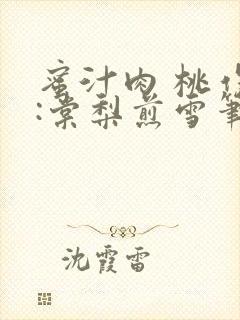 蜜汁肉桃作
:棠梨煎雪筆
沈霞雷